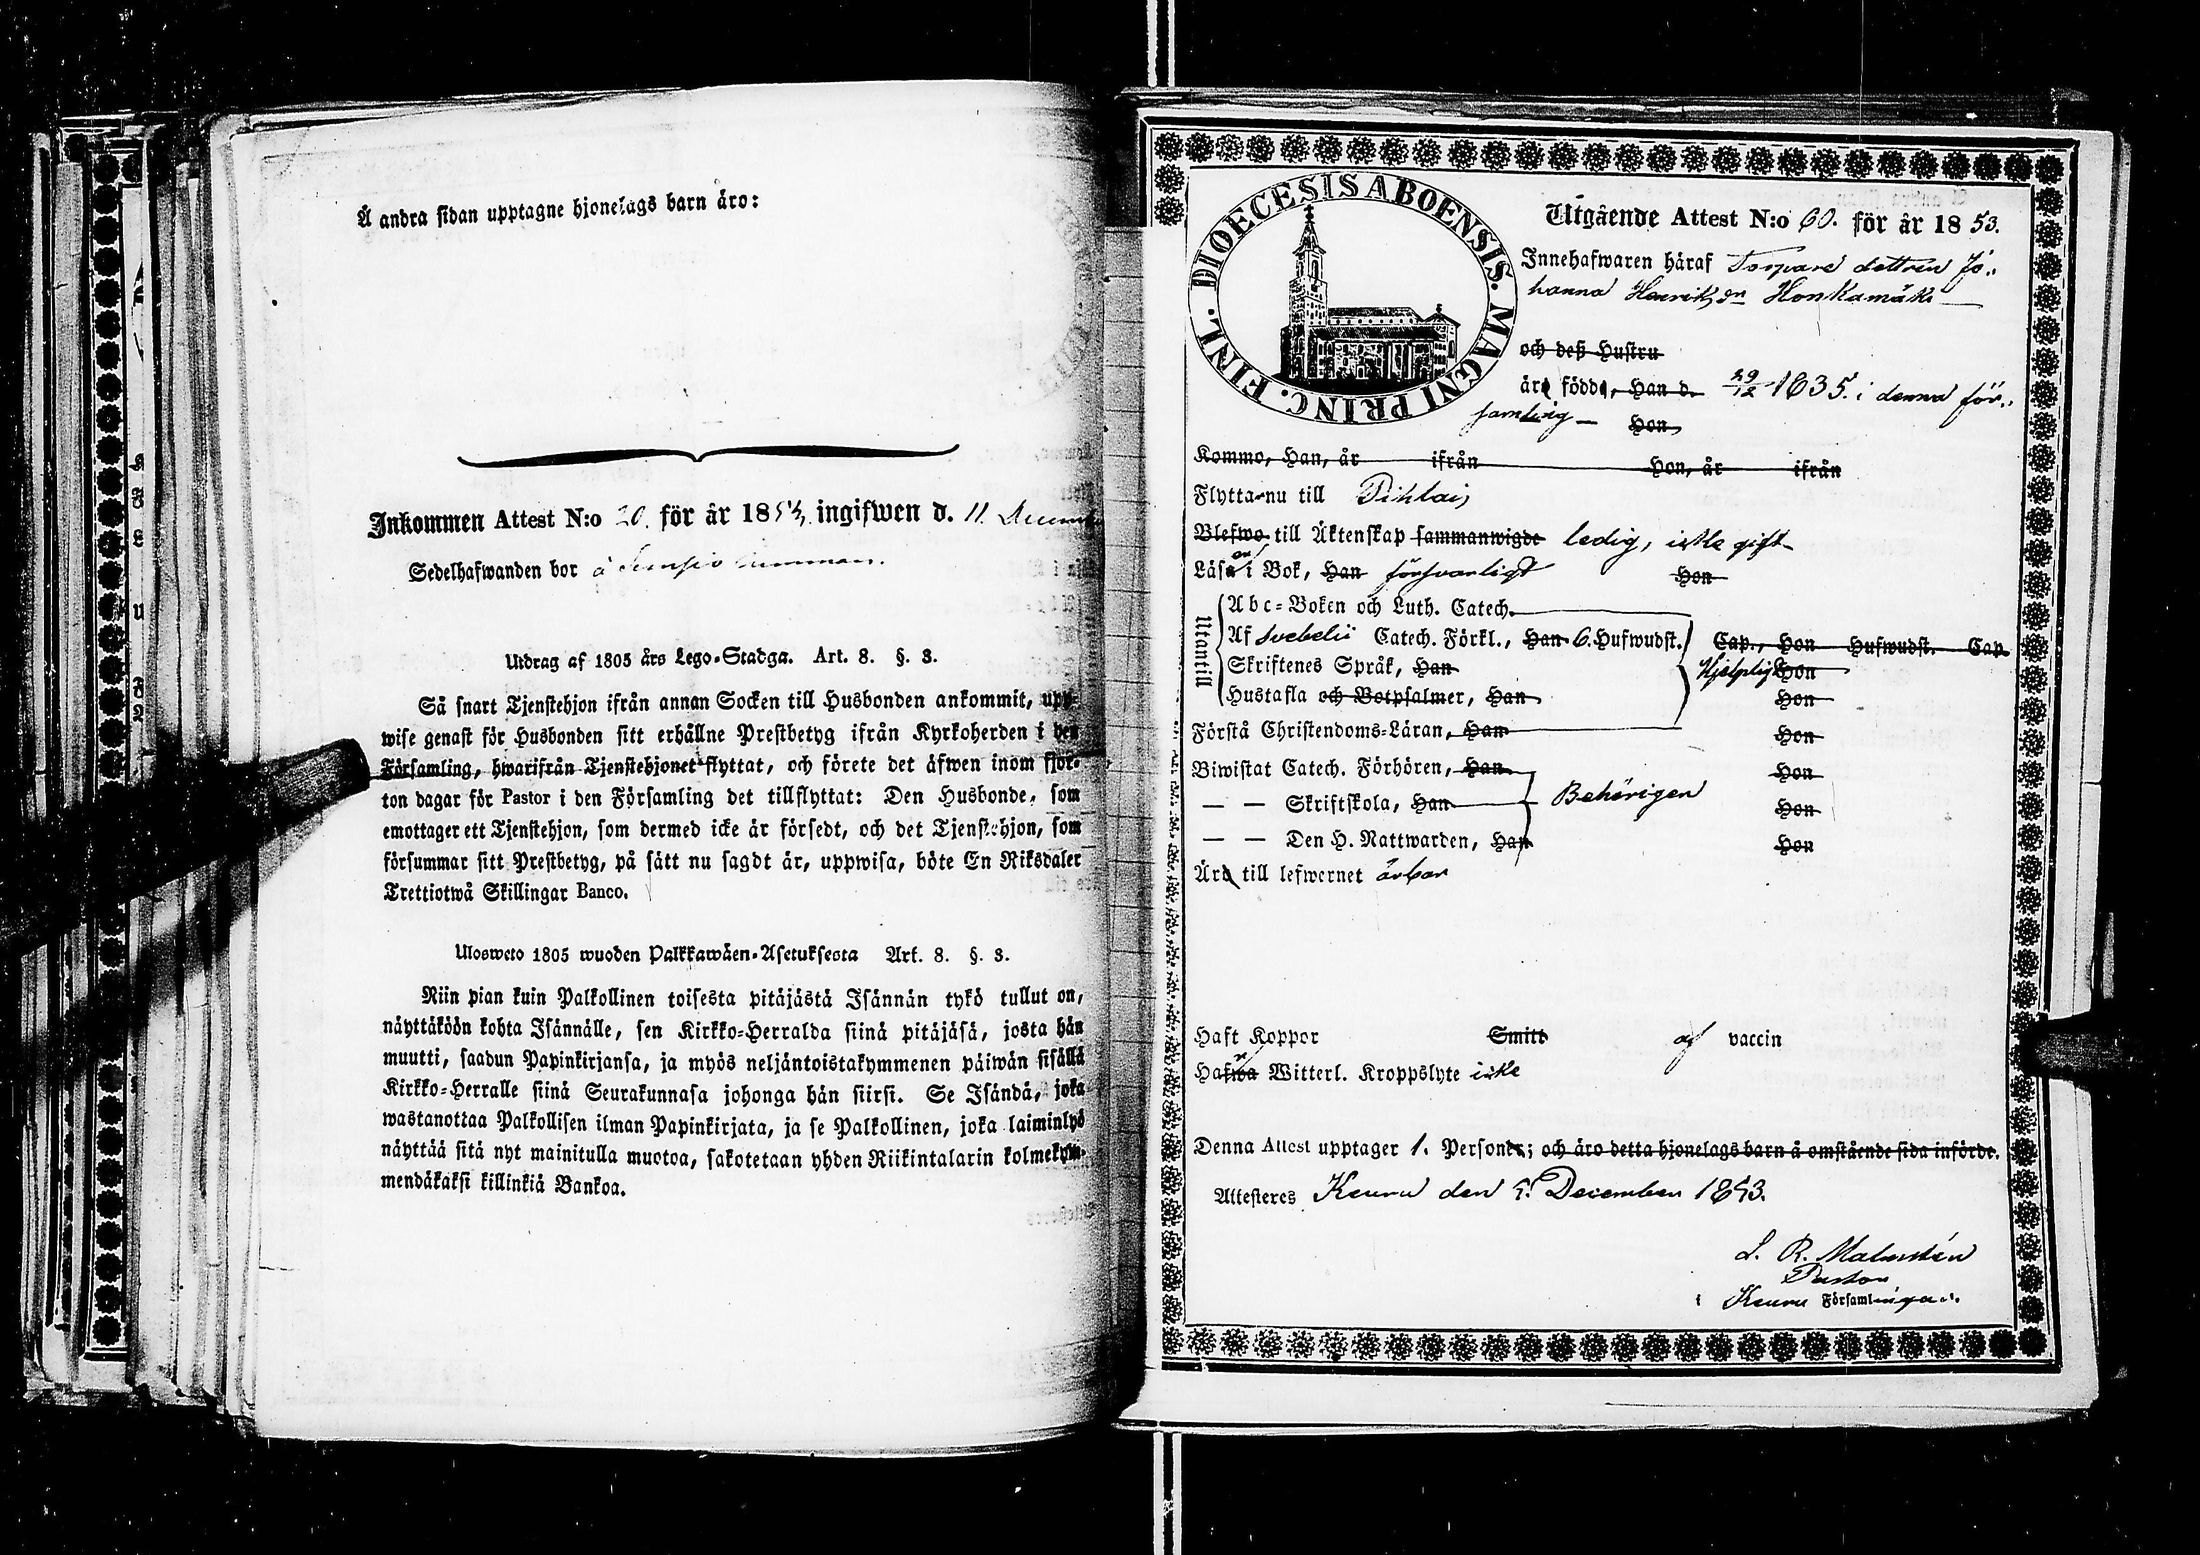 Å andra sidan upptagne hjonelags barn äro:
Inkommen Attest N:o 20. för år 185 ingifwen d. 11. December
Sedelhafwanden bor å
Utdrag af 1805 års Lego-Stadga. Art. 8. §. 3.
Så snart Tjenstehjon ifrån annan Socken till Husbonden ankommit, upp-
wise genast för Husbonden sitt erhållne Prestbetyg ifrån Kyrkoherden i den
Församling, hwarifrån Tjenstehjonet flyttat, och förete det äfwen inom fjor-
ton dagar för Pastor i den Församling det tillflyttat: Den Husbonde, som
emottager ett Tjenstehjon, som dermed icke är försedt, och det Tjenstehjon, som
försummar sitt Prestbetyg, på sätt nu sagdt är, uppwisa, böte En Riksdaler
Trettiotwå Skillingar Banco.
Ulosweto 1805 wuoden Palkkawäen-Asetuksesta Art. 8. §. 3.
Niin pian kuin Palkollinen toisesta pitäjästä Isännän tykö tullut on,
näyttäköön kohta Isännälle, sen Kirkko-Herralda siinä pitäjäsä, josta hän
muutti, saadun Papinkirjansa, ja myös neljäntoistakymmenen päiwän sisällä
Kirkko-Herralle siinä Seurakunnasa johonga hän siirsi. Se Isändä, joka
wastanottaa Palkollisen ilman Papinkirjata, ja se Palkollinen, joka laiminlyö
näyttää sitä nyt mainitulla muotoa, sakotetaan yhden Riikintalarin kolmekym-
mendäkaksi killinkiä Bankoa.
DIOECESIS ABOENSIS. MAGNI PRINC. FINL.
Utgående Attest N:o 60. för år 1853.
Innehafwaren häraf Torpare dottren Jo-
hanna Henriksdr Honkamäki
och deß Hustru
äro födde, Han d. 29/12 1835. i denna för-
samling Hon
Kommo, Han, år ifrån Hon, år ifrån
Flytta nu till Pihlais
Blefwo till Äktenskap sammanwigde ledig, icke gift
Läsa i Bok, Han försvarligt Hon
Utantill
Abc-Boken och Luth. Catech.
Af Svebelii Catech. Förkl., Han 6. Hufwudst. Cap., Hon Hufwudst. Cap
Skriftenes Språk, Han Hjelpligt Hon
Hustafla och Botpsalmer, Han Hon
Förstå Christendoms-Läran, Han Hon
Biwistat Catech. Förhören, Han Hon
— — Skriftskola, Han Behörigen Hon
— — Den H. Nattwarden, Han Hon
Äro till lefwernet ärbar
Haft Koppor Smitt af vaccin
Hafwa Witterl. Kroppslyte icke
Denna Attest upptager 1. Persone; och äro detta hjonelags barn å omstående sida införde.
Attesteres Keuru den 5. December 1853.
L. R. Malmstén
Pastor
i Keuru Församlingar.